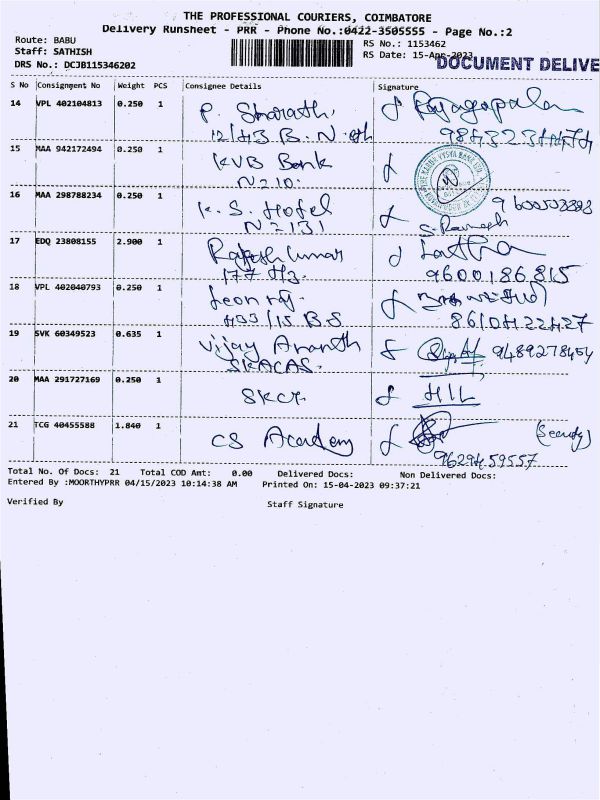 THE PROFESSIONAL COURIERS, COIMBATORE
Delivery Runsheet - PRR - Phone No.:0422-3505555 - Page No.:2
Route: BABU
Staff: SATHISH
DRS No.: DCJB115346202
RS No.: 1153462
RS Date: 15-Apr-2023
DOCUMENT DELIVE
S No Consignment No Weight PCS Consignee Details Signature
14 VPL 402104813 0.250 1 P. Sharath, Rajagopalan
12/43 B. N.
15 MAA 942172494 0.250 1 KVB Bank
N210.
16 MAA 298788234 0.250 1 K. S. Hotel
N2131 S. Ramesh
17 EDQ 23808155 2.900 1 Rajesh Kumar Latha
177 H3. 9600186815
18 VPL 402040793 0.250 1 Leon raj.
433/15 B.S 8610422427
19 SVK 60349523 0.635 1 Vijay Ananth 9489278454
SKACAS.
20 MAA 291727169 0.250 1 SKCT. HIL
21 TCG 40455588 1.840 1 CS Academy (Security)
9629459557
Total No. Of Docs: 21 Total COD Amt: 0.00 Delivered Docs: Non Delivered Docs:
Entered By :MOORTHYPRR 04/15/2023 10:14:38 AM Printed On: 15-04-2023 09:37:21
Verified By Staff Signature